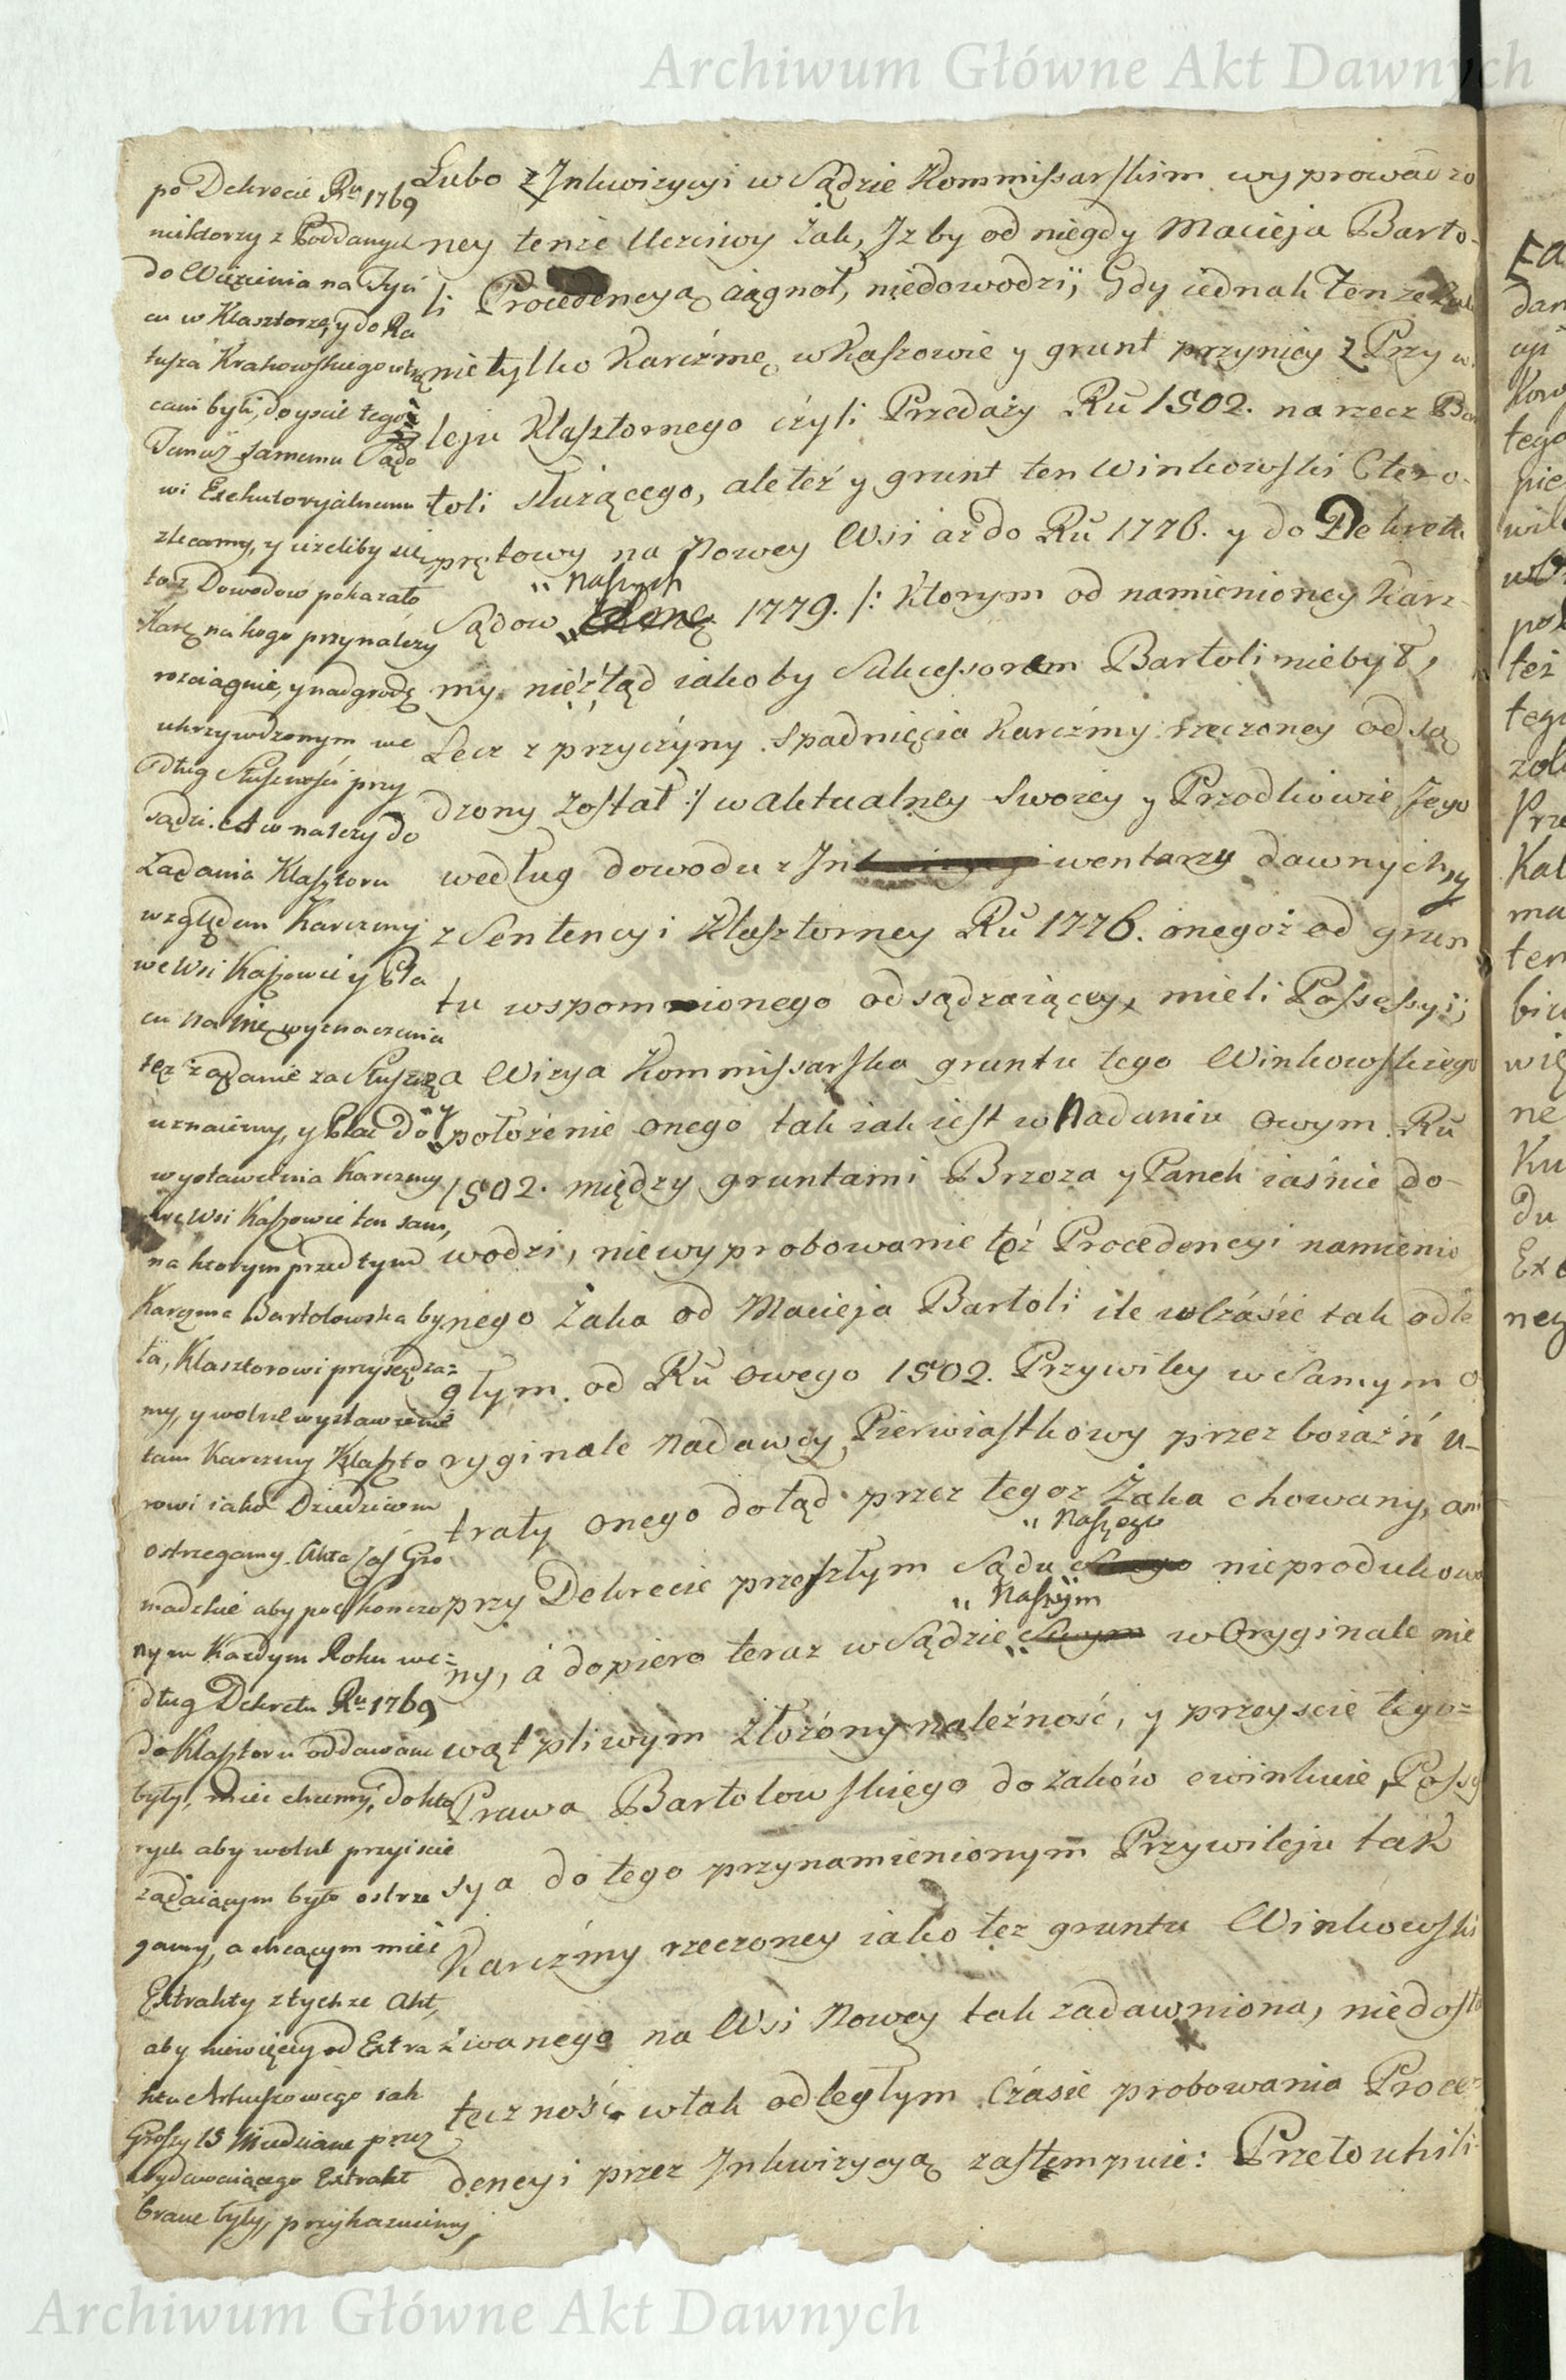 Archiwum Główne Akt Dawnych
po Dekrecie Ru 1769
niektorzy z Poddanych
do Więzienia na Tyń
cu w Klasztorze, y do Ra
tusza Krakowskiego wtrą
cani byli, doyscie tegoż
Temuż samemu Sądo
wi Exekutoryalnemu
zlecamy, y ieżeliby się
to z Dowodow pokazało
Karę na kogo przynależy
rozciągnie, y nadgrodę
ukrzywdzonym we
dług Słuszności przy
sądzi. co w należy do
Żądania Klasztoru
względem Karczmy
we Wsi Kaszowie y Pla
cu na nię wyznaczenia
też żądanie za Słuszne
uznaiemy, y Plac do
wystawienia Karczmy
we Wsi Kaszowie ten sam,
na ktorym przed tym
Karczma Bartolowska by
ła, Klasztorowi przysądza=
my, y wolne wystawienie
tam Karczmy Klaszto
rowi iako Dziedzicom
ostrzegamy. Akta zaś Gro
madzkie aby po skończo
nym Każdym Roku we=
dług Dekretu Ru 1769
do Klasztoru oddawane
były, mieć chcemy, do kto
rych aby wolne przyiscie
żądaiącym było ostrze
gamy, a chcącym mieć
Extrakty z tychże Akt,
aby niewięcey od Extra
ktu Arkuszowego iak
Groszy 15 Miedziane przez
wydawaiącego Extrakt
brane były, przykazuiemy,
Lubo z Inkwizycyi w Sądzie Kommissarskim wyprowadzo
ney tenże Uczciwy Żak, Jżby od niegdy Macieja Barto-
li Procedencyą ciągnoł, niedowodzi; Gdy iednak Tenże Żak
nietylko Karczmę w Kaszowie y grunt przyniey z Przywi
leju Klasztornego czyli Przedaży Ru 1502. na rzecz Bar
toli służącego, ale też y grunt ten Winkowski Cztero-
prętowy na Nowey Wsi aż do Ru 1776. y do Dekretu
Sądow " Naszych 1779. /: Ktorym od namienioney Karcz-
my nie ztąd iakoby Sukcessorem Bartoli niebył,
Lecz z przyczyny Spadnięcia Karczmy rzeczoney odsą
dzony został :/ w aktualney Swoiey y Przodkowie Jego
według dowodu z Inwentarzy dawnych, y
z Sentencyi Klasztorney Ru 1776. onegoż od grun
tu wspomnionego odsądzaiącey, mieli Possessyi;
a Wizya Kommissarska gruntu tego Winkowskiego
y położenie onego tak iak iest w Nadaniu owym Ru
1502. między gruntami Brzoza y Panek iaśnie do-
wodzi, niewyprobowanie też Procedencyi namienio
nego Żaka od Macieja Bartoli ile w Czasie tak odle
głym od Ru owego 1502. Przywiley w Samym O
ryginale Nadawczy Pierwiastkowy przez boiaźń u-
traty onego dotąd przez tegoż Żaka chowany, ani
przy Dekrecie przeszłym Sądu " Naszego nieprodukowa
ny, á dopiero teraz w Sądzie " Naszym w Oryginale nie
wątpliwym złożóny należność, y przeyscie tego=
Prawa Bartolowskiego do Żaków ewinkuie, Posse
sya do tego przynamienionym Przywileju tak
Karczmy rzeczoney iako też gruntu Winkowski
zwanego na Wsi Nowey tak zadawniona, niedosta
teczność w tak odległym Czasie probowania Proce=
dencyi przez Inkwizycyą zastempuie: Przeto uchili
Archiwum Główne Akt Dawnych